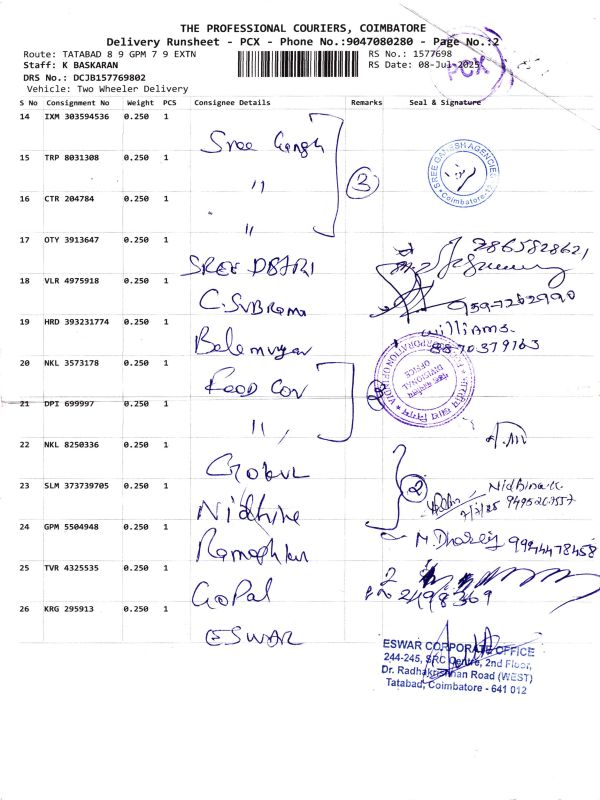 THE PROFESSIONAL COURIERS, COIMBATORE
Delivery Runsheet - PCX - Phone No.:9047080280 - Page No.:2
Route: TATABAD 8 9 GPM 7 9 EXTN RS No.: 1577698
Staff: K BASKARAN RS Date: 08-Jul-2025
DRS No.: DCJB157769802
Vehicle: Two Wheeler Delivery
PCX
S No Consignment No Weight PCS Consignee Details Remarks Seal & Signature
14 IXM 303594536 0.250 1 Sree Gangh
15 TRP 8031308 0.250 1 " 3
SREE GANESH AGENCIES Coimbatore-12
16 CTR 204784 0.250 1 "
17 OTY 3913647 0.250 1 SREE DBARI 9865828621
18 VLR 4975918 0.250 1 C. Subrama 9597202990
19 HRD 393231774 0.250 1 williams.
8870379163
20 NKL 3573178 0.250 1 FOOD Cor
CORPORATION OF INDIA
DIVISIONAL OFFICE
21 DPI 699997 0.250 1 "
22 NKL 8250336 0.250 1 Gokul
23 SLM 373739705 0.250 1 Nidhine 2
24 GPM 5504948 0.250 1 9994478458
25 TVR 4325535 0.250 1 GOPAL 2498369
26 KRG 295913 0.250 1 ESWAR
ESWAR CORPORATE OFFICE
244-245, SRC Centre, 2nd Floor,
Dr. Radhakrishnan Road (WEST)
Tatabad, Coimbatore - 641 012